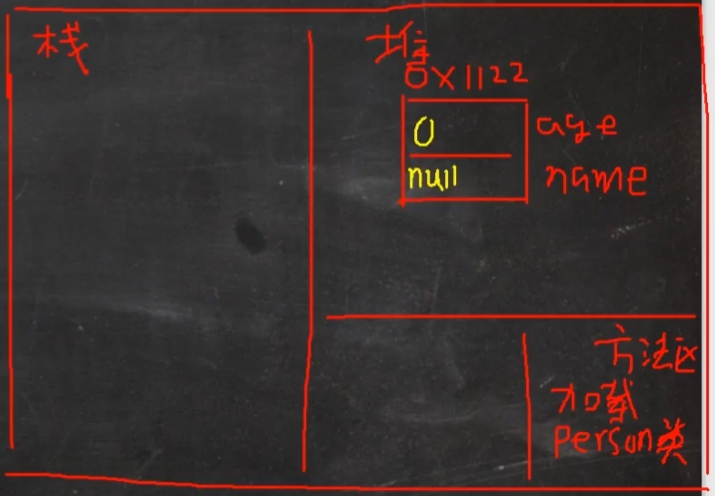 栈
堆
0x1122
0 age
null name
方法区
加载
Person类